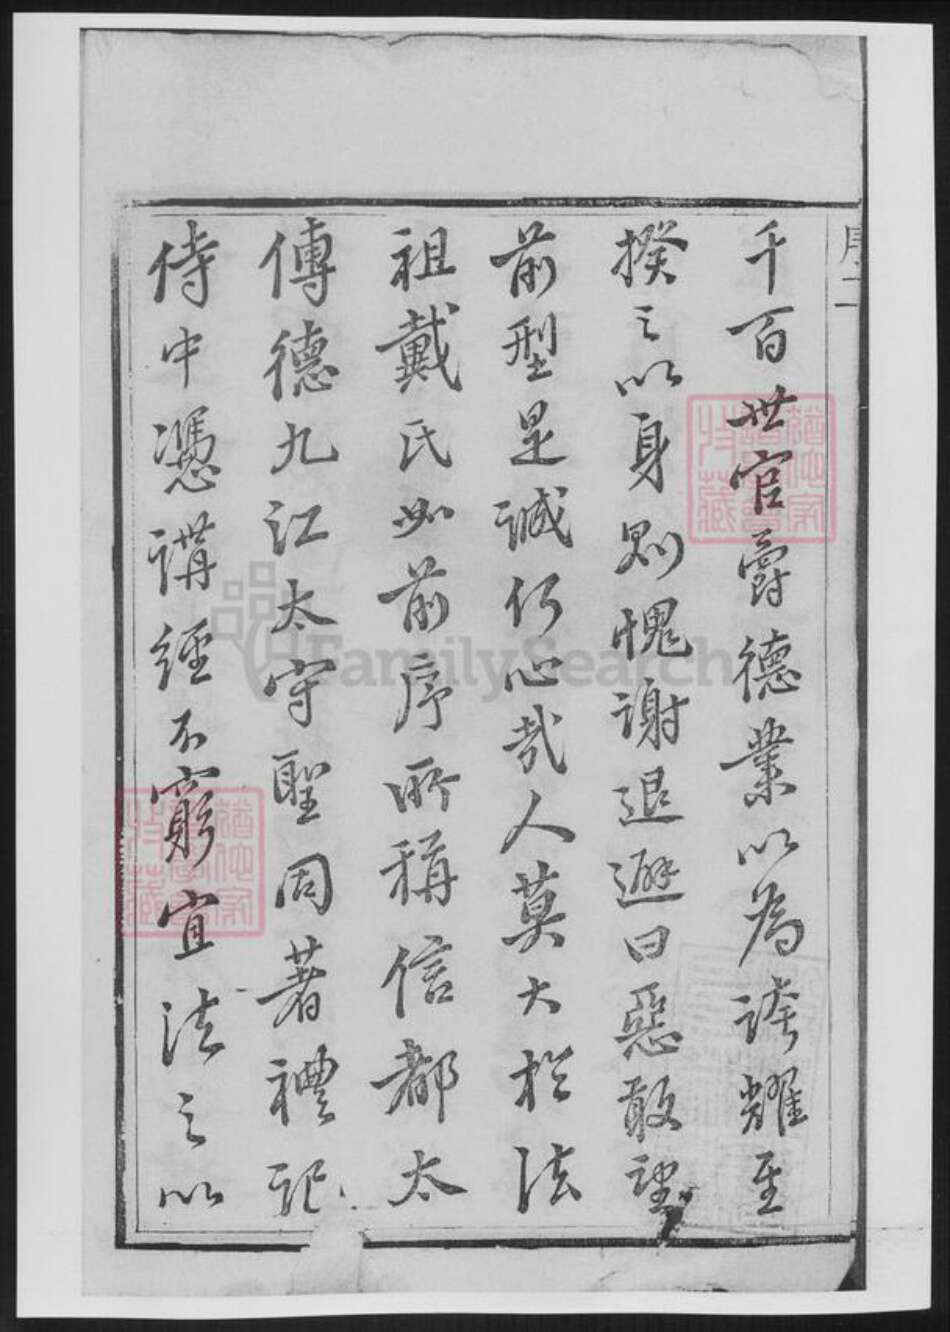 序二
千百世官爵德業以為誇耀至
揆之以身則愧謝退避曰惡敢望
前型是誠何心哉人莫大於法
祖戴氏如前序所稱信都太
傅德九江太守聖周著禮記
侍中憑講經不窮宜法之以
FamilySearch